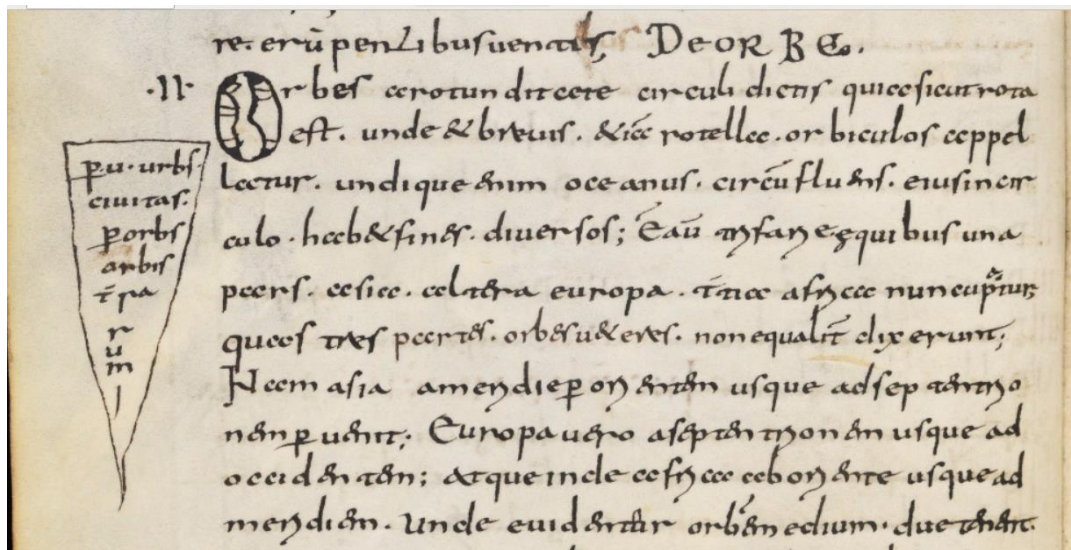 re. erūpentibus uentis, De ORBE.
.II. Orbes a rotunditate circuli dictis quia sicut rota
est. unde & breuis. &iā rotella. orbiculos appel
latur. undique enim oceanus. circūfluens. eius in cir
culo. hab& fines. diuersos; Eaū trifarie equibus una
pars. asia. altera europa. t̄tia africa nuncupatur;
quas tres partes. orbes u&eres. non equalit̄ dixerunt;
Nam asia a meridie ꝑ orientem usque ad septentrio
nem ꝑuenit; Europa uero a septentrionem usque ad
occidentem; Atque inde africa ab oriente usque ad
meridiem. Unde euidenter orbem edium. due tenent.
ꝑ.u. urbs.
ciuitas.
ꝑ orbs
orbis
t̄ ra
r
u
m